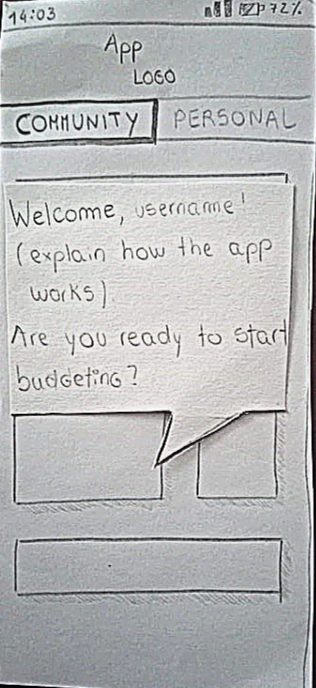 14:03 72%
App
LOGO
COMMUNITY PERSONAL
Welcome, username!
(explain how the app
works).
Are you ready to start
budgeting?